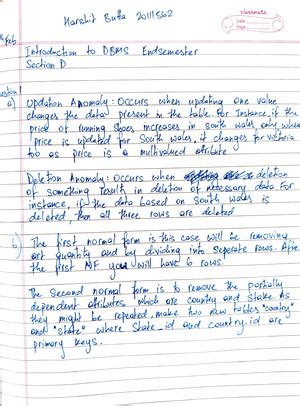 Harshit Butta 20111562
classmate
Date
Page
Feb
Introduction to DBMS Endsemester
Section D
a) Updation Anomaly: Occurs when updating one value
changes the data present in the table. For Instance, if the
price of running shoes increases in South wales, only when
price is updated for South Wales, it changes for victoria
too as price is a multivalued attribute
Deletion Anomaly: Occurs when deletion
of something results in deletion of necessary data. For
instance, if the data based on South Wales is
deleted, then all three rows are deleted
b) The first normal form is this case will be removing
art quantity and by dividing into seperate rows. After
the first NF you will have 6 rows.
The second normal form is to remove the partially
dependent attributes which are country and state. As
they might be repeated, make two new tables "country"
and "state" where State_id and country_id are
primary keys.